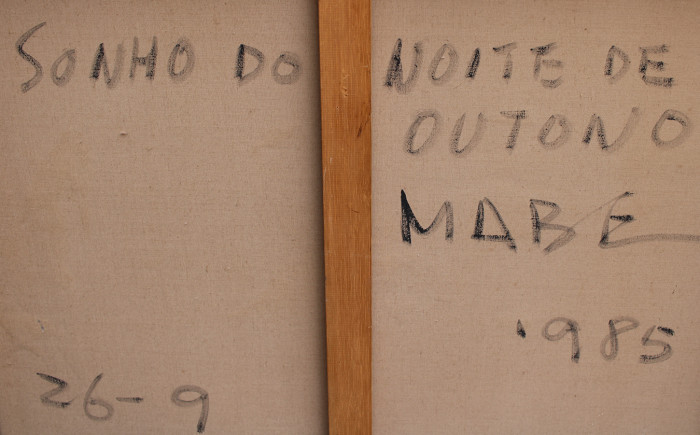 SONHO DO NOITE DE
OUTONO
MABE
'985
26-9